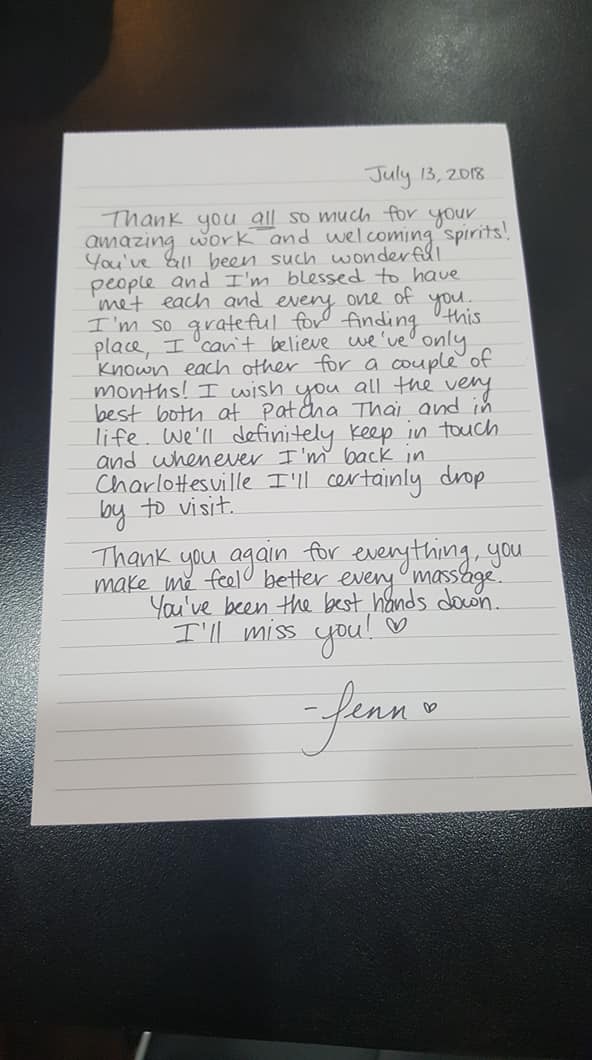 July 13, 2018
Thank you all so much for your
amazing work and welcoming spirits!
You've all been such wonderful
people and I'm blessed to have
met each and every one of you.
I'm so grateful for finding this
place, I can't believe we've only
known each other for a couple of
months! I wish you all the very
best both at Patcha Thai and in
life. We'll definitely keep in touch
and whenever I'm back in
Charlottesville I'll certainly drop
by to visit.
Thank you again for everything, you
make me feel better every massage.
You've been the best hands down.
I'll miss you! ♡
- Jenn ♡